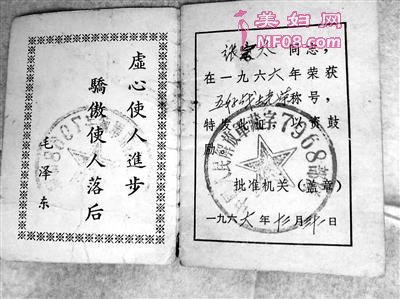 虛心使人進步
驕傲使人落后
毛泽东
同志，
在一九六六年荣获
五好战士光荣称号，
特
以资鼓
励
批准机关（盖章）
一九六六年 月 日
中国人民解放军蓝字7968部
美妇网
MF08.com